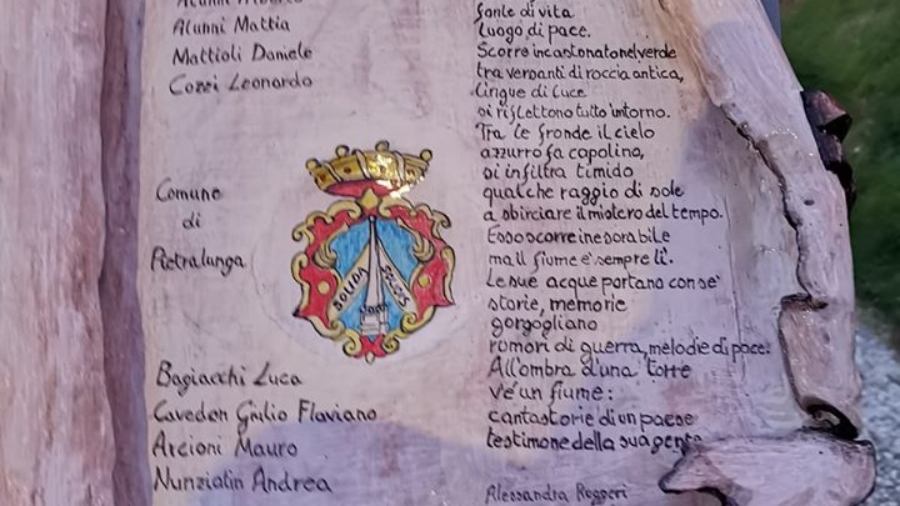 Alunni Alberto
Alunni Mattia
Mattioli Daniele
Cozzi Leonardo
Comune
di
Pietralunga
SOLIDA
SILCIS
Bagiacchi Luca
Cavedon Giulio Flaviano
Arcioni Mauro
Nunziatin Andrea
fonte di vita
luogo di pace.
Scorre incastonato nel verde
tra versanti di roccia antica,
lingue di luce
si riflettono tutto intorno.
Tra le fronde il cielo
azzurro fa capolino,
si infiltra timido
qualche raggio di sole
a sbirciare il mistero del tempo.
Esso scorre inesorabile
ma il fiume è sempre lì.
Le sue acque portano con se'
storie, memorie
gorgogliano
rumori di guerra, melodie di pace.
All'ombra d'una torre
v'é un fiume:
cantastorie di un paese
testimone della sua gente.
Alessandra Roggeri